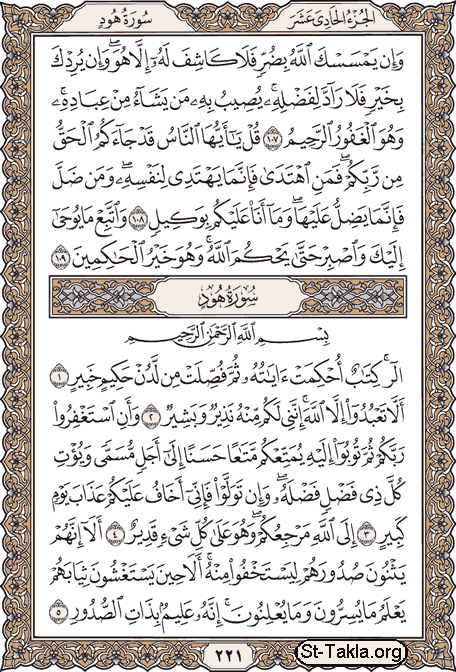 سُورَةُ هُودٍ
الجُزْءُ الحَادِىَ عَشَرَ
وَإِن يَمْسَسْكَ ٱللَّهُ بِضُرٍّ فَلَا كَاشِفَ لَهُۥٓ إِلَّا هُوَ ۖ وَإِن يُرِدْكَ
بِخَيْرٍ فَلَا رَآدَّ لِفَضْلِهِۦ ۚ يُصِيبُ بِهِۦ مَن يَشَآءُ مِنْ عِبَادِهِۦ ۚ
وَهُوَ ٱلْغَفُورُ ٱلرَّحِيمُ ١٠٧ قُلْ يَـٰٓأَيُّهَا ٱلنَّاسُ قَدْ جَآءَكُمُ ٱلْحَقُّ
مِن رَّبِّكُمْ ۖ فَمَنِ ٱهْتَدَىٰ فَإِنَّمَا يَهْتَدِى لِنَفْسِهِۦ ۖ وَمَن ضَلَّ
فَإِنَّمَا يَضِلُّ عَلَيْهَا ۖ وَمَآ أَنَا۠ عَلَيْكُم بِوَكِيلٍ ١٠٨ وَٱتَّبِعْ مَا يُوحَىٰٓ
إِلَيْكَ وَٱصْبِرْ حَتَّىٰ يَحْكُمَ ٱللَّهُ ۚ وَهُوَ خَيْرُ ٱلْحَـٰكِمِينَ ١٠٩
سُورَةُ هُودٍ
بِسْمِ ٱللَّهِ ٱلرَّحْمَـٰنِ ٱلرَّحِيمِ
الٓر ۚ كِتَـٰبٌ أُحْكِمَتْ ءَايَـٰتُهُۥ ثُمَّ فُصِّلَتْ مِن لَّدُنْ حَكِيمٍ خَبِيرٍ ١
أَلَّا تَعْبُدُوٓا۟ إِلَّا ٱللَّهَ ۚ إِنَّنِى لَكُم مِّنْهُ نَذِيرٌ وَبَشِيرٌ ٢ وَأَنِ ٱسْتَغْفِرُوا۟
رَبَّكُمْ ثُمَّ تُوبُوٓا۟ إِلَيْهِ يُمَتِّعْكُم مَّتَـٰعًا حَسَنًا إِلَىٰٓ أَجَلٍ مُّسَمًّى وَيُؤْتِ
كُلَّ ذِى فَضْلٍ فَضْلَهُۥ ۖ وَإِن تَوَلَّوْا۟ فَإِنِّىٓ أَخَافُ عَلَيْكُمْ عَذَابَ يَوْمٍ
كَبِيرٍ ٣ إِلَى ٱللَّهِ مَرْجِعُكُمْ ۖ وَهُوَ عَلَىٰ كُلِّ شَىْءٍ قَدِيرٌ ٤ أَلَآ إِنَّهُمْ
يَثْنُونَ صُدُورَهُمْ لِيَسْتَخْفُوا۟ مِنْهُ ۚ أَلَا حِينَ يَسْتَغْشُونَ ثِيَابَهُمْ
يَعْلَمُ مَا يُسِرُّونَ وَمَا يُعْلِنُونَ ۚ إِنَّهُۥ عَلِيمٌۢ بِذَاتِ ٱلصُّدُورِ ٥
٢٢١
St-Takla.org